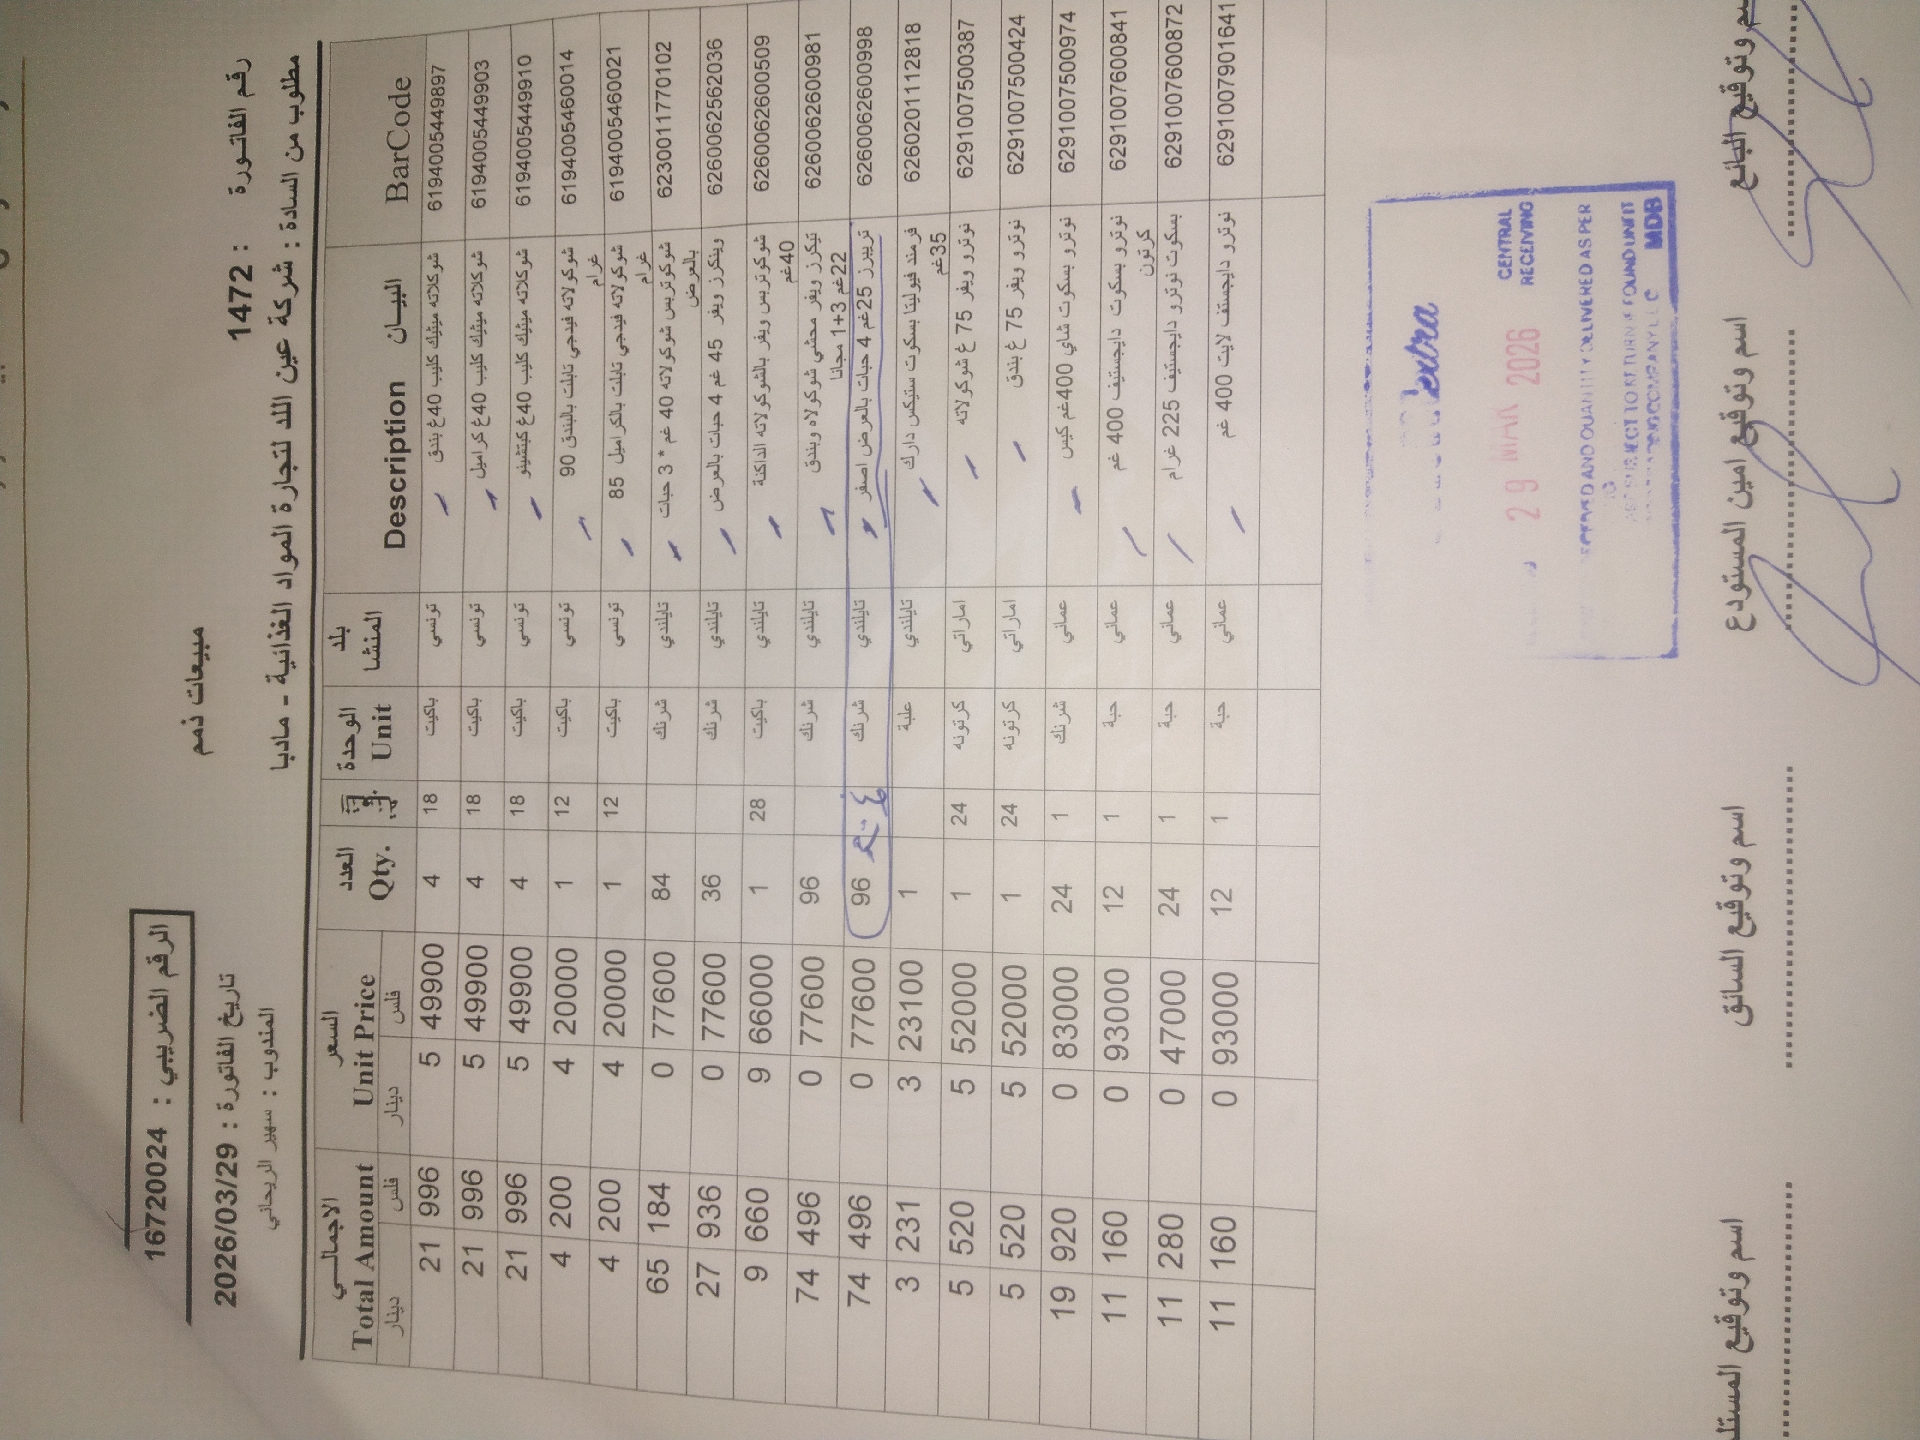 الرقم الضريبي : 16720024
مبيعات ذمم
رقم الفاتورة : 1472
تاريخ الفاتورة : 2026/03/29
مطلوب من السادة : شركة عين اللد لتجارة المواد الغذائية - مادبا
المندوب : سهير الريحاني
BarCode | البيـان Description | بلد المنشا | الوحدة Unit | العدد Qty. | السعر Unit Price فلس دينار | الاجمالـي Total Amount فلس دينار
6194005449897 | شوكلاته ميثيك كليب 40غ بندق | تونسي | باكيت | 18 | 4 | 49900 5 | 996 21
6194005449903 | شوكلاته ميثيك كليب 40غ كراميل | تونسي | باكيت | 18 | 4 | 49900 5 | 996 21
6194005449910 | شوكلاته ميثيك كليب 40غ كيتشينو | تونسي | باكيت | 18 | 4 | 49900 5 | 996 21
6194005460014 | شوكولاته فيدجي تابلت بالبندق 90 غرام | تونسي | باكيت | 12 | 1 | 20000 4 | 200 4
6194005460021 | شوكولاته فيدجي تابلت بالكراميل 85 غرام | تونسي | باكيت | 12 | 1 | 20000 4 | 200 4
6230011770102 | شوكوتريس شوكولاته 40 غم * 3 حبات بالعرض | تايلندي | شرنك | 84 | 77600 0 | 184 65
6260062562036 | وينكرز ويفر 45 غم 4 حبات بالعرض | تايلندي | شرنك | 36 | 77600 0 | 936 27
6260062600509 | شوكوتريس ويفر بالشوكولاته الداكنة 40غم | تايلندي | باكيت | 28 | 1 | 66000 9 | 660 9
6260062600981 | تيكرز ويفر محشي شوكولاه وبندق 22غم 3+1 مجانا | تايلندي | شرنك | 96 | 77600 0 | 496 74
6260062600998 | تريبرز 25غم 4 حبات بالعرض اصفر | تايلندي | شرنك | 96 | 77600 0 | 496 74
6260201112818 | فرمند فيوليتا بسكوت ستيكس دارك 35غم | تايلندي | علبة | 1 | 23100 3 | 231 3
6291007500387 | نوترو ويفر 75 غ شوكولاته | اماراتي | كرتونه | 24 | 1 | 52000 5 | 520 5
6291007500424 | نوترو ويفر 75 غ بندق | اماراتي | كرتونه | 24 | 1 | 52000 5 | 520 5
6291007500974 | نوترو بسكوت شاي 400غم كيس | عماني | شرنك | 1 | 24 | 83000 0 | 920 19
6291007600841 | نوترو بسكوت دايجستيف 400 غم كرتون | عماني | حبة | 1 | 12 | 93000 0 | 160 11
6291007600872 | بسكوت نوترو دايجستيف 225 غرام | عماني | حبة | 1 | 24 | 47000 0 | 280 11
6291007901641 | نوترو دايجستف لايت 400 غم | عماني | حبة | 1 | 12 | 93000 0 | 160 11
extra
CENTRAL
RECEIVING
29 MAR 2026
AND QUANTITY DELIVERED AS PER
SUBJECT TO RETURN IF FOUND UNFIT
TRADING COMPANY LLC MDB
سم وتوقيع البائع
اسم وتوقيع امين المستودع
اسم وتوقيع السائق
اسم وتوقيع المستلم